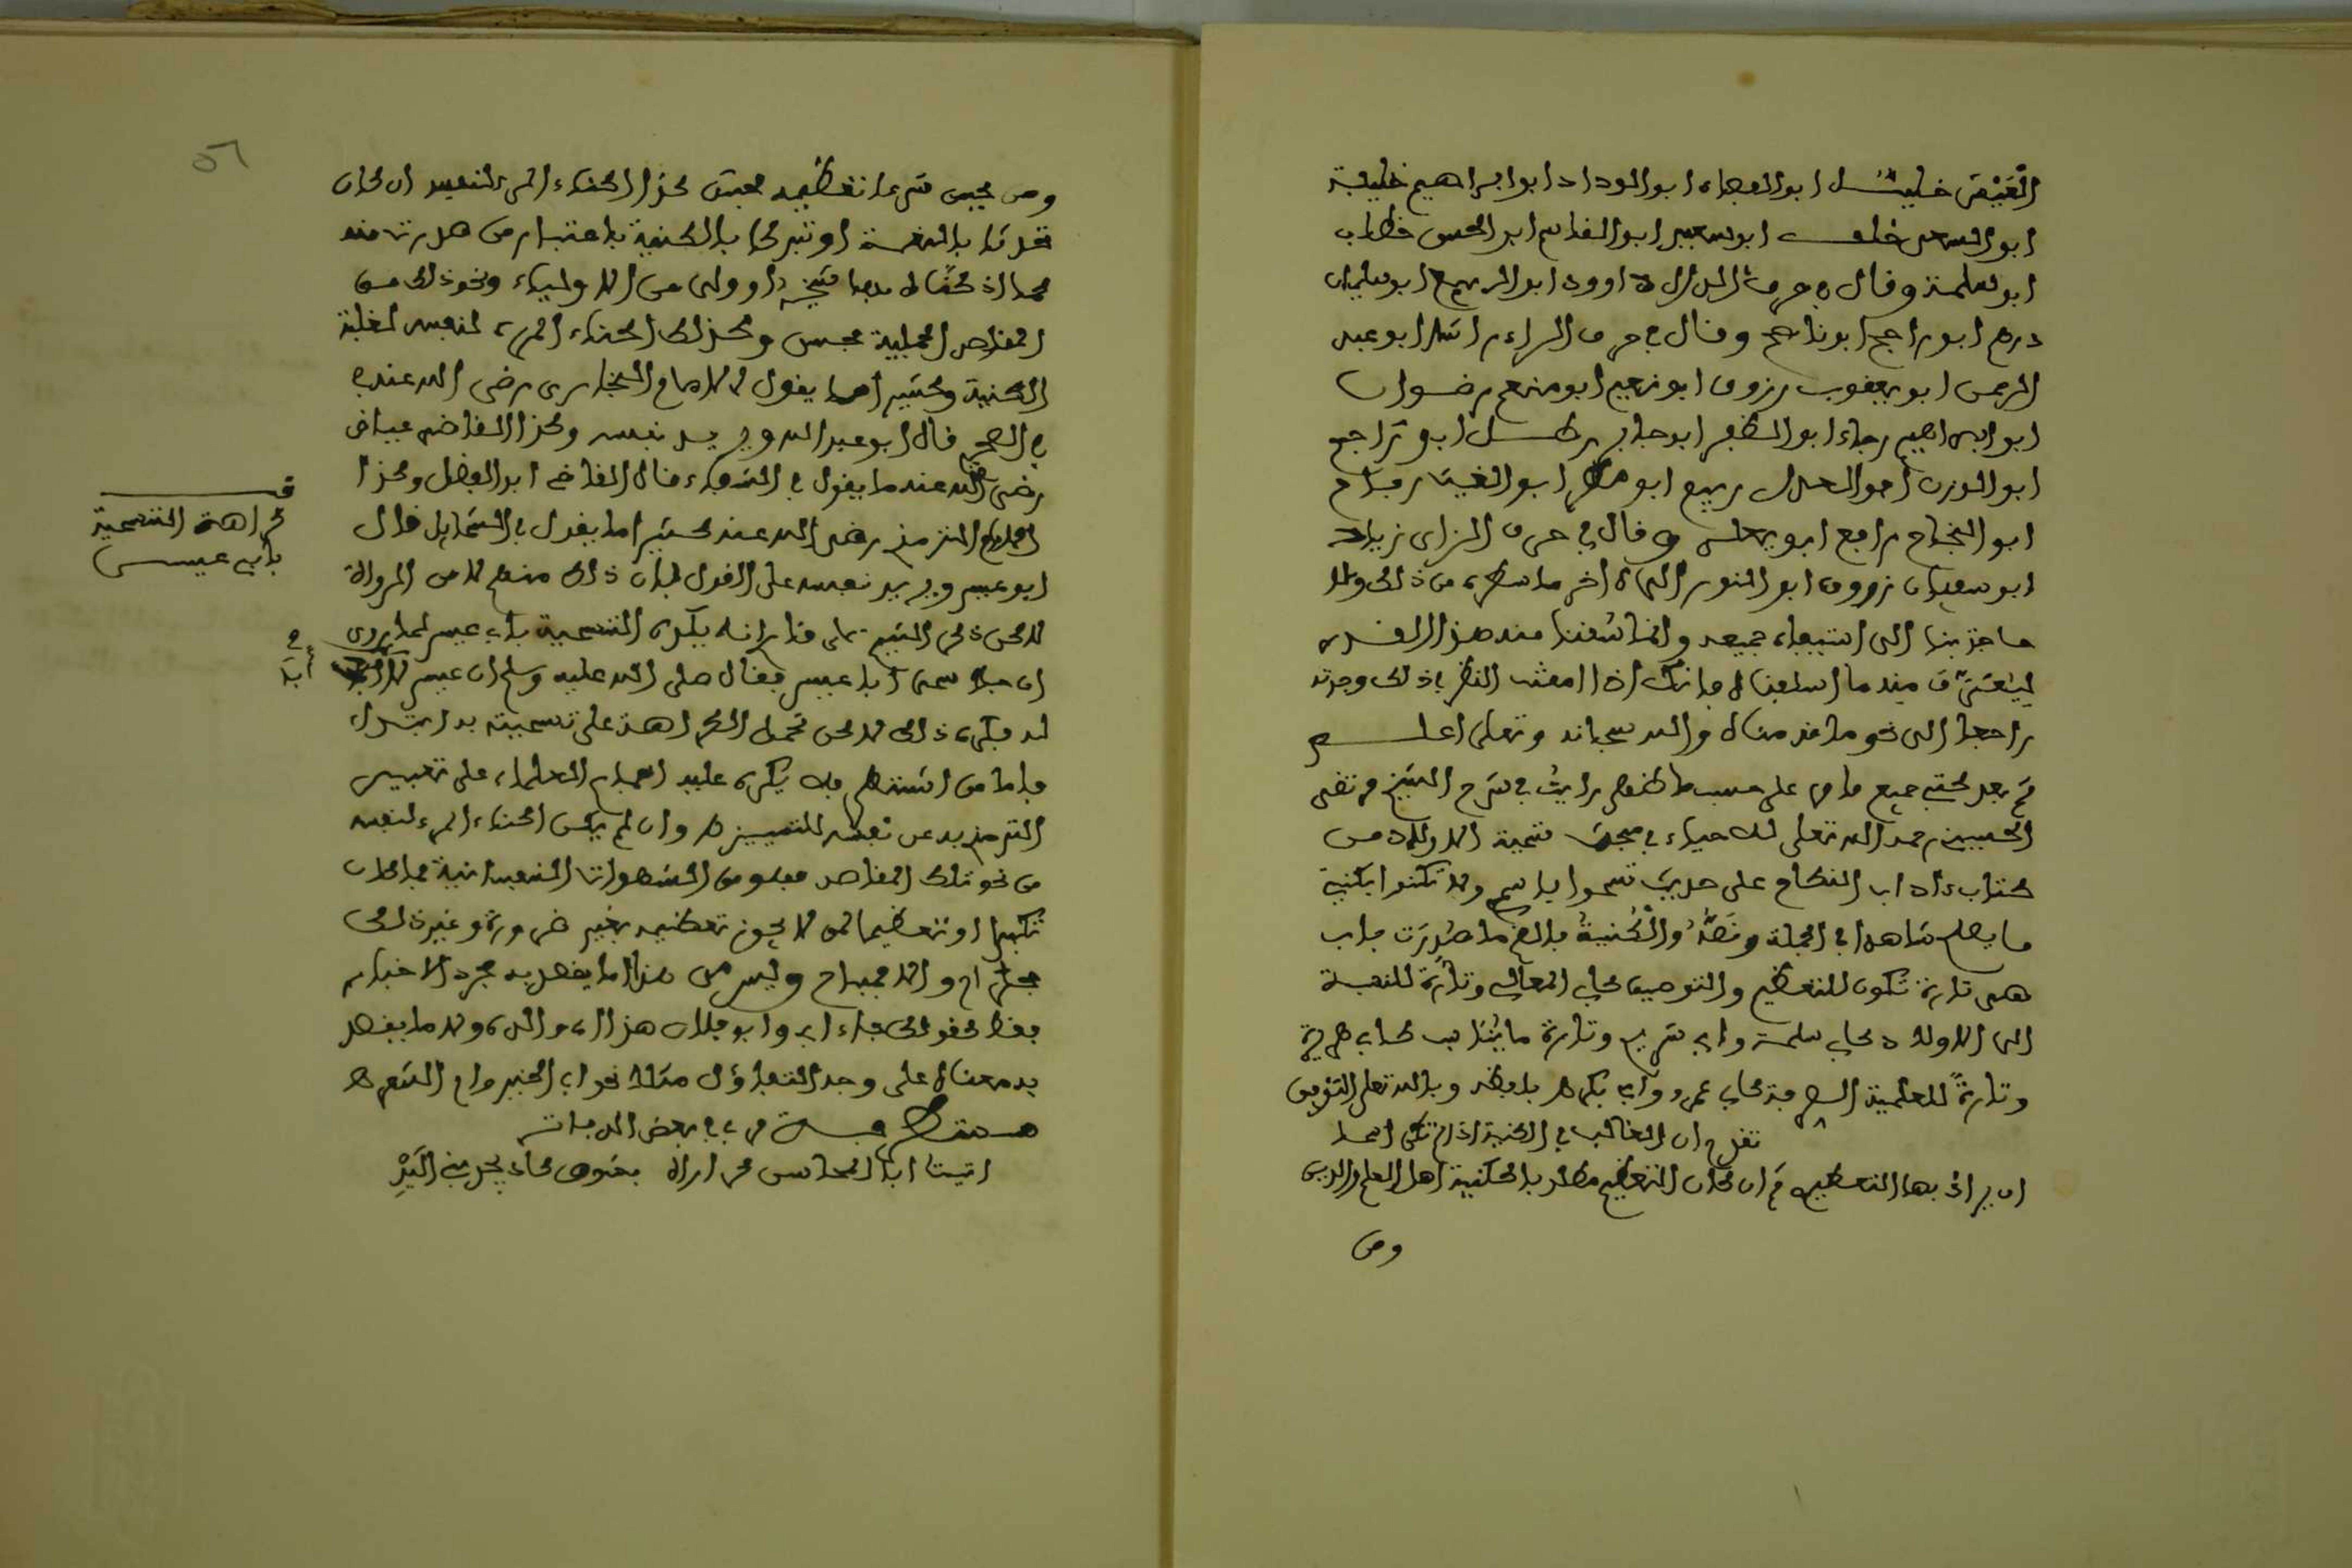 الغيث خليل ابو الوفاء ابو الوداد ابو ابراهيم خليفة
ابو السعد خلف ابو سعيد ابو القاسم ابو الحسن خطاب
ابو سلمة وقال في حرف الدال داوود ابو الربيع ابو سليمان
درهم ابو راجح ابو ناجح وقال في حرف الراء راشد ابو عبد
الرحمن ابو يعقوب رزوق ابو نعيم ابو منعم رضوان
ابو ابراهيم رجاء ابو المظفر ابو جابر ابو راجح
ابو الوزن ابو العدل ربيع ابو مطر ابو الغيث رباح
ابو النجاح رافع ابو يعلى وقال في حرف الزاي زياد
ابو سفيان زروق ابو النور الى اخر ما سطره من ذلك ولا
حاجة بنا الى استيفاء جميعه وانما سقنا منه هذا القدر
منه ما اسلفناه فانك اذا امعنت النظر في ذلك وجدته
راجعا الى نحو ما قدمناه والله سبحانه وتعلى اعلم
ثم بعد كتبي جميع ما مر على حسب ما ظهر رايت في شرح الشيخ مرتضى
الحسيني رحمه الله تعلى للاحياء في مبحث تسمية الاولاد من
كتاب ءاداب النكاح على حديث تسموا باسمي ولا تكنوا بكنيتي
ما يصلح شاهدا في الجملة ونصه والكنية بالضم ما صدرت باب
هي تارة تكون للتعظيم والتوصيف كابي المعالي وتارة للنسبة
الى الاولاد كابي سلمة وابي شريح وتارة ما يناسب كابي هريرة
وتارة للعلمية الصرفة كابي عمرو وابي بكر ه بلفظه وبالله تعلى التوفيق
تقدم ان الغالب في الكنية اذا لم تكن اسما
ان يراد بها التعظيم ثم ان كان التعظيم مطلوبا ككنية اهل العلم والدين
ومن
ومن يجب شرعا تعظيمه فحسن وكذا اكتناء المرء لنفسه ان كان
تحدثا بالنعمة او تبركا بالكنية باعتبار من صدرت منه
لها اذ كناه بها شيخه او ولي من الاولياء ونحو ذلك من
المقاصد الجميلة فحسن وكذلك اكتناء المرء لنفسه لغلبة
الكنية وكثيرا ما يقول الامام البخاري رضي الله عنه
في الصحيح قال ابو عبد الله ويريد نفسه وكذا القاضي عياض
رضي الله عنه ما يقول في الشفاء قال القاضي ابو الفضل وكذا
الامام الترمذي رضي الله عنه كثيرا ما يقول في الشمائل قال
ابو عيسى ويريد نفسه على القول بان ذلك منهم لا من الرواة
لاكن ذكر الشيخ على قارانه يكره التسمية بابي عيسى لما روي
ان رجلا سمي ابا عيسى فقال صلى الله عليه وسلم ان عيسى لا اب
له فكره ذلك لاكن تحمل الكراهة على تسميته به ابتداء
فاما من اشتهر به فلا يكره عليه اجماع العلماء على تعبير
الترمذي به عن نفسه للتمييز ه وان لم يكن اكتناء المرء لنفسه
من نحو تلك المقاصد فهو من الشهوات النفسانية فما كان
تكبرا او تعظيما لمن لا يجوز تعظيمه بغير ضرورة وغير ذلك
فحرام والا فمباح وليس من هذا ما يقصد به مجرد الاخبار
فقط كقولك جاء ابي وابو فلان هذا اي والده ولا ما يقصد
به معناه على وجه التفاؤل مثلا نحو ابي الخير وام السعد ه
مستطرفة مر بي في بعض
اتيت ابا المحاسن كي اراه بشوق كاد يجذبني اليه
٥٦
قف
كراهة التسمية
بابي عيسى